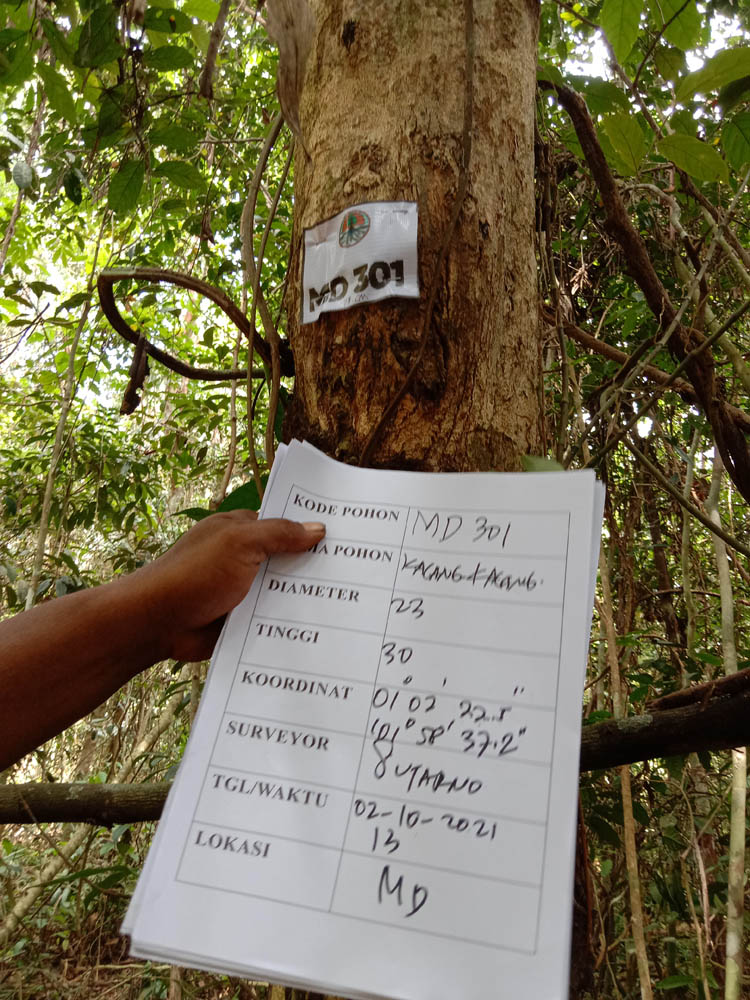 MD 301
KODE POHON MD 301
MA POHON KACANG-KACANG.
DIAMETER 23
TINGGI 30
KOORDINAT 01° 02' 22.5"
101° 58' 37.2"
SURVEYOR SUTARNO
TGL/WAKTU 02-10-2021
13
LOKASI MD